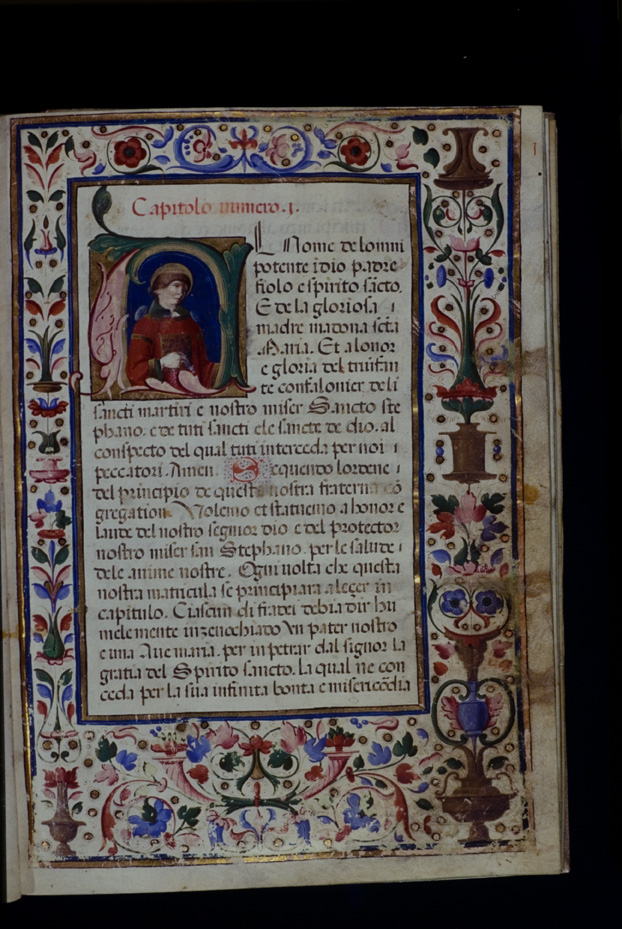 Capitolo numero .j.
L Nome de lomni
potente idio padre
fiolo e spirito sãcto.
E de la gloriosa
madre madona sctã
Maria. Et a lonor
e gloria del triũfan
te confalonier de li
sancti martiri e nostro miser Sancto ste
phano. e de tuti sancti e le sancte de dio. al
conspecto del qual tuti interceda per noi
peccatori. Amen. Sequendo lordene
del principio de questa nostra fraterna cõ
gregation. Volemo et statuemo a honor e
laude del nostro segnor dio e del protector
nostro miser san Stephano. per le salute
dele anime nostre. Ogni volta che questa
nostra matricula se principiara a leçer in
capitulo. Ciascun di fradei debia dir hu
mele mente inzenochiado vn pater nostro
e una Aue maria. per inpetrar dal signor la
gratia del Spirito sancto. la qual ne con
ceda per la sua infinita bonta e misericõdia